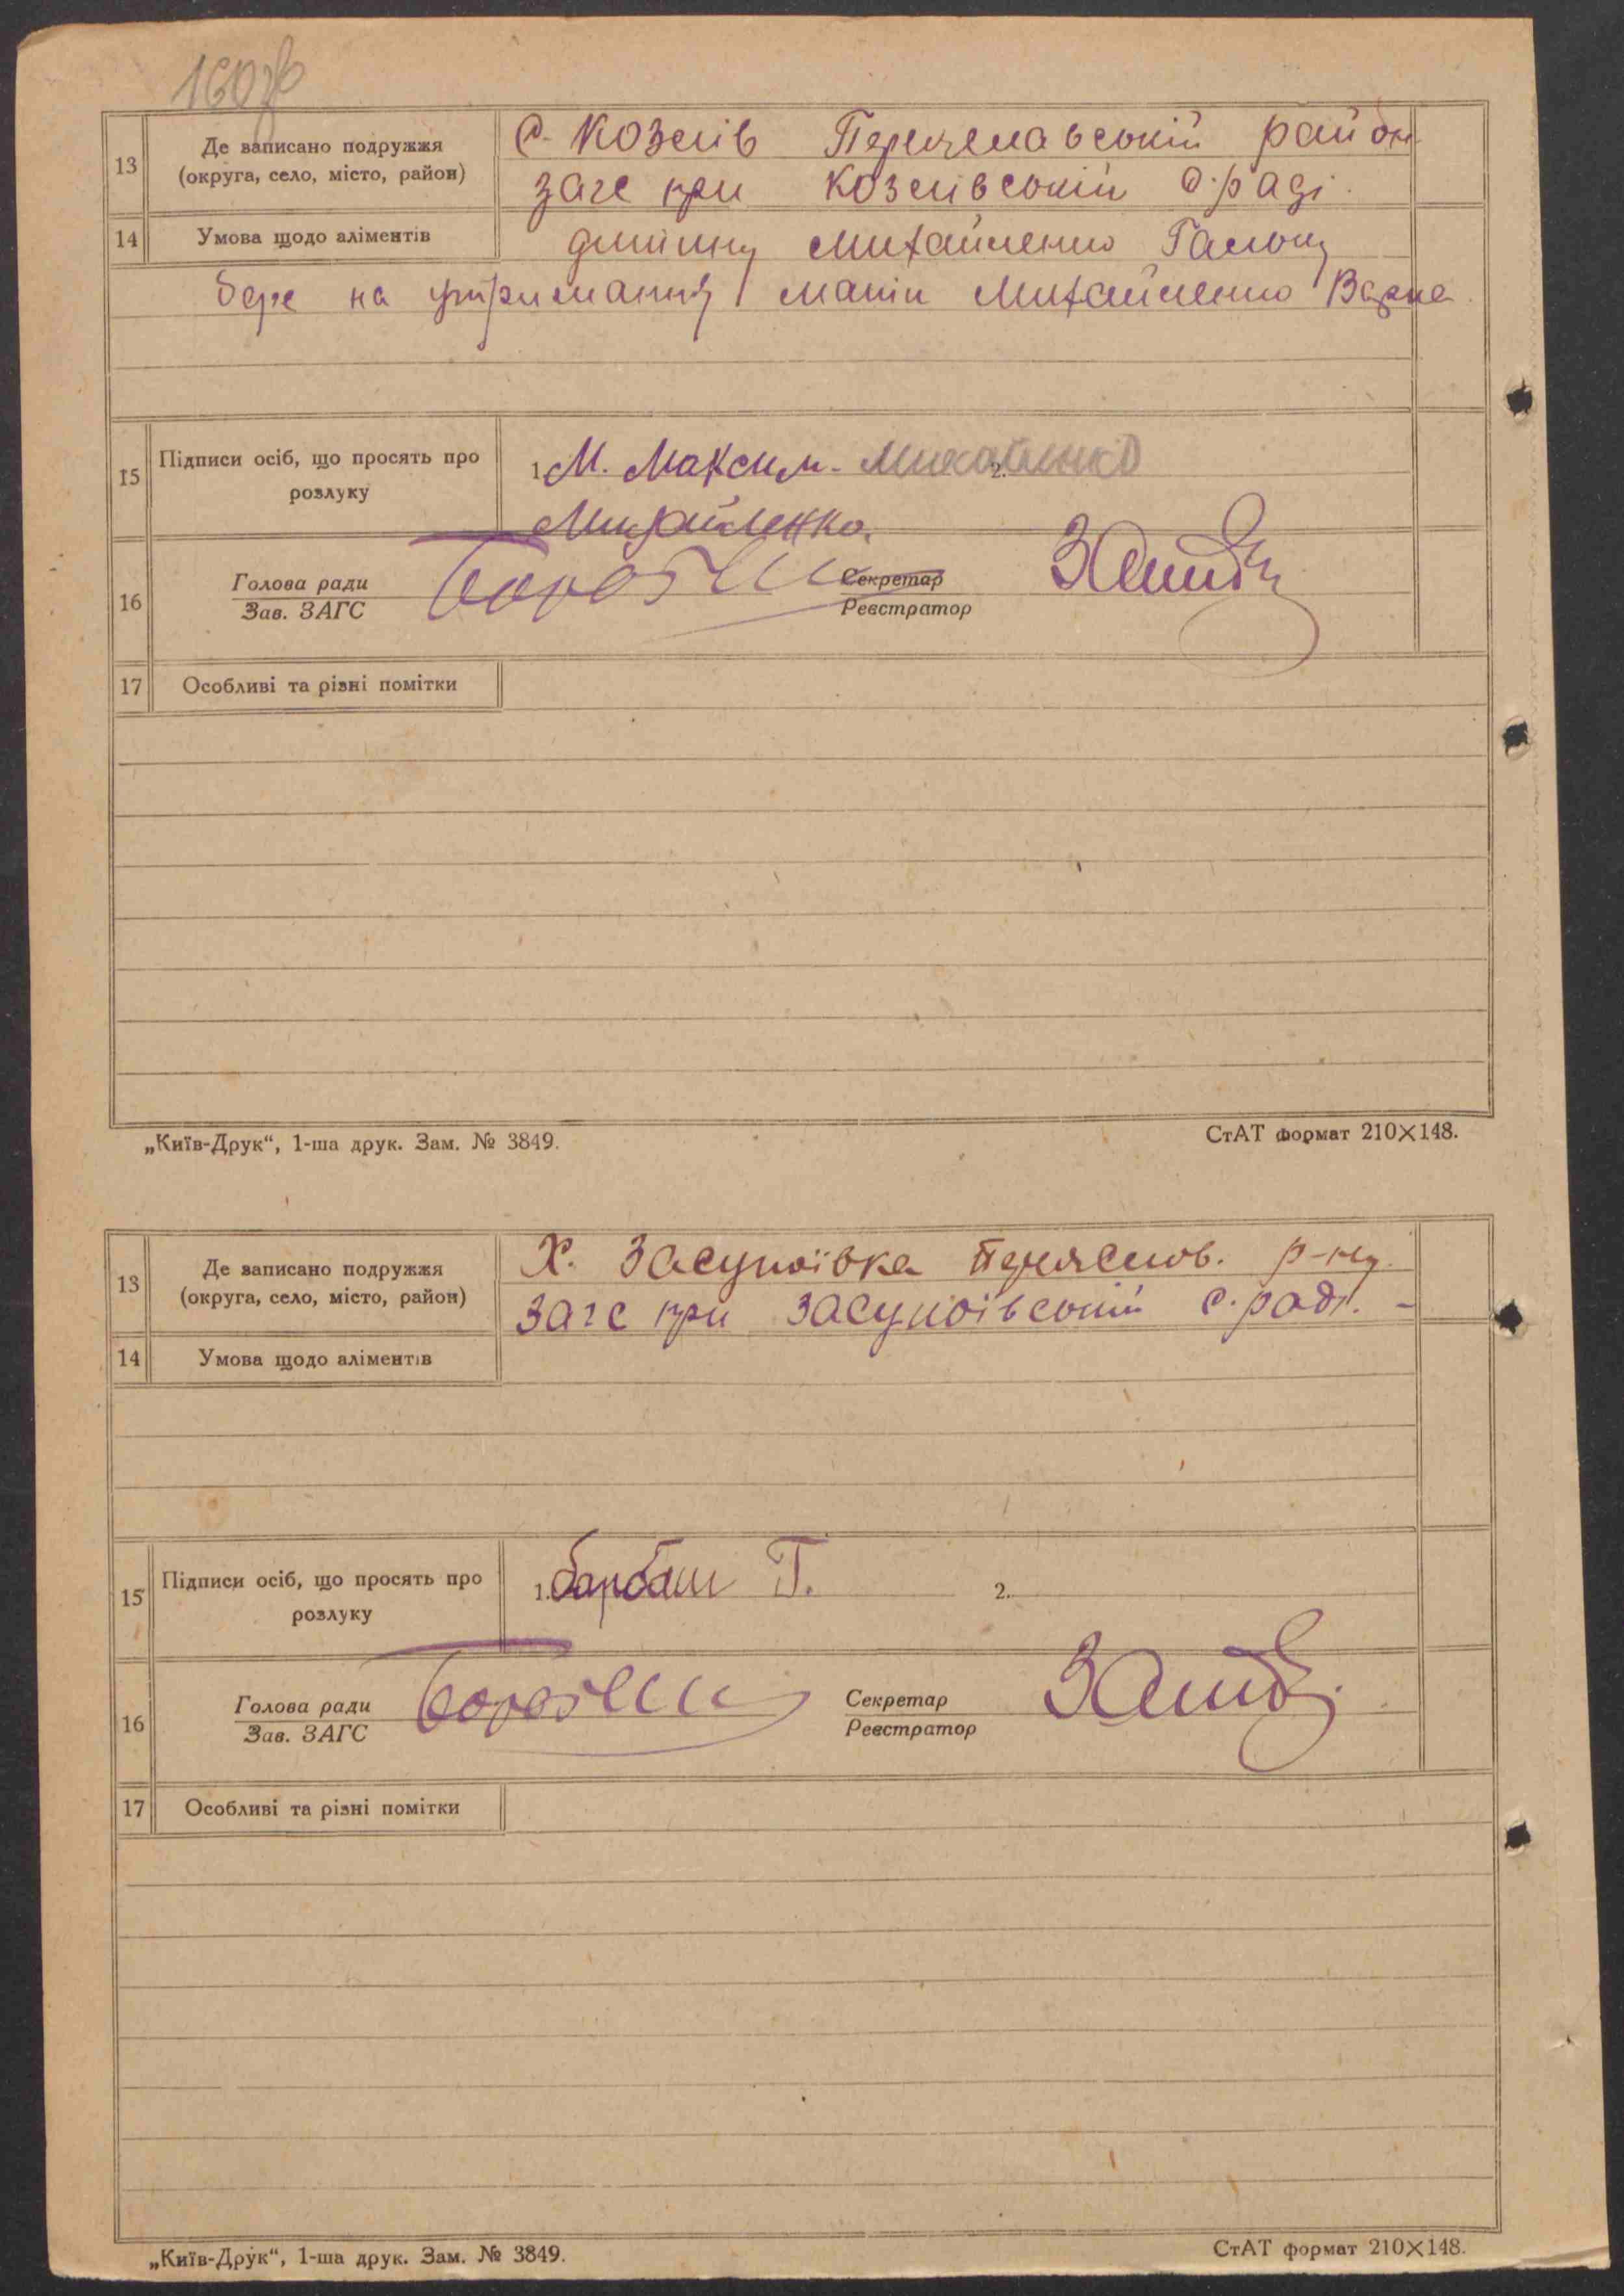 160зв
13
Де записано подружжя
(округа, село, місто, район)
с. Козлів Переяславський район
загс при Козлівській с. раді.
14
Умова щодо аліментів
дитину Михайленко Галину
бере на утримання мати Михайленко Варка
15
Підписи осіб, що просять про
розлуку
1. М. Максим. Михайленко 2.
Михайленко.
16
Голова ради
Зав. ЗАГС
Секретар
Реєстратор
17
Особливі та різні помітки
„Київ-Друк“, 1-ша друк. Зам. № 3849.
СтАТ формат 210×148.
13
Де записано подружжя
(округа, село, місто, район)
Х. Засупоївка Переяслов. р-ну.
загс при Засупоївській с. раді. -
14
Умова щодо аліментів
15
Підписи осіб, що просять про
розлуку
1. барбаш Г. 2.
16
Голова ради
Зав. ЗАГС
Секретар
Реєстратор
17
Особливі та різні помітки
„Київ-Друк“, 1-ша друк. Зам. № 3849.
СтАТ формат 210×148.